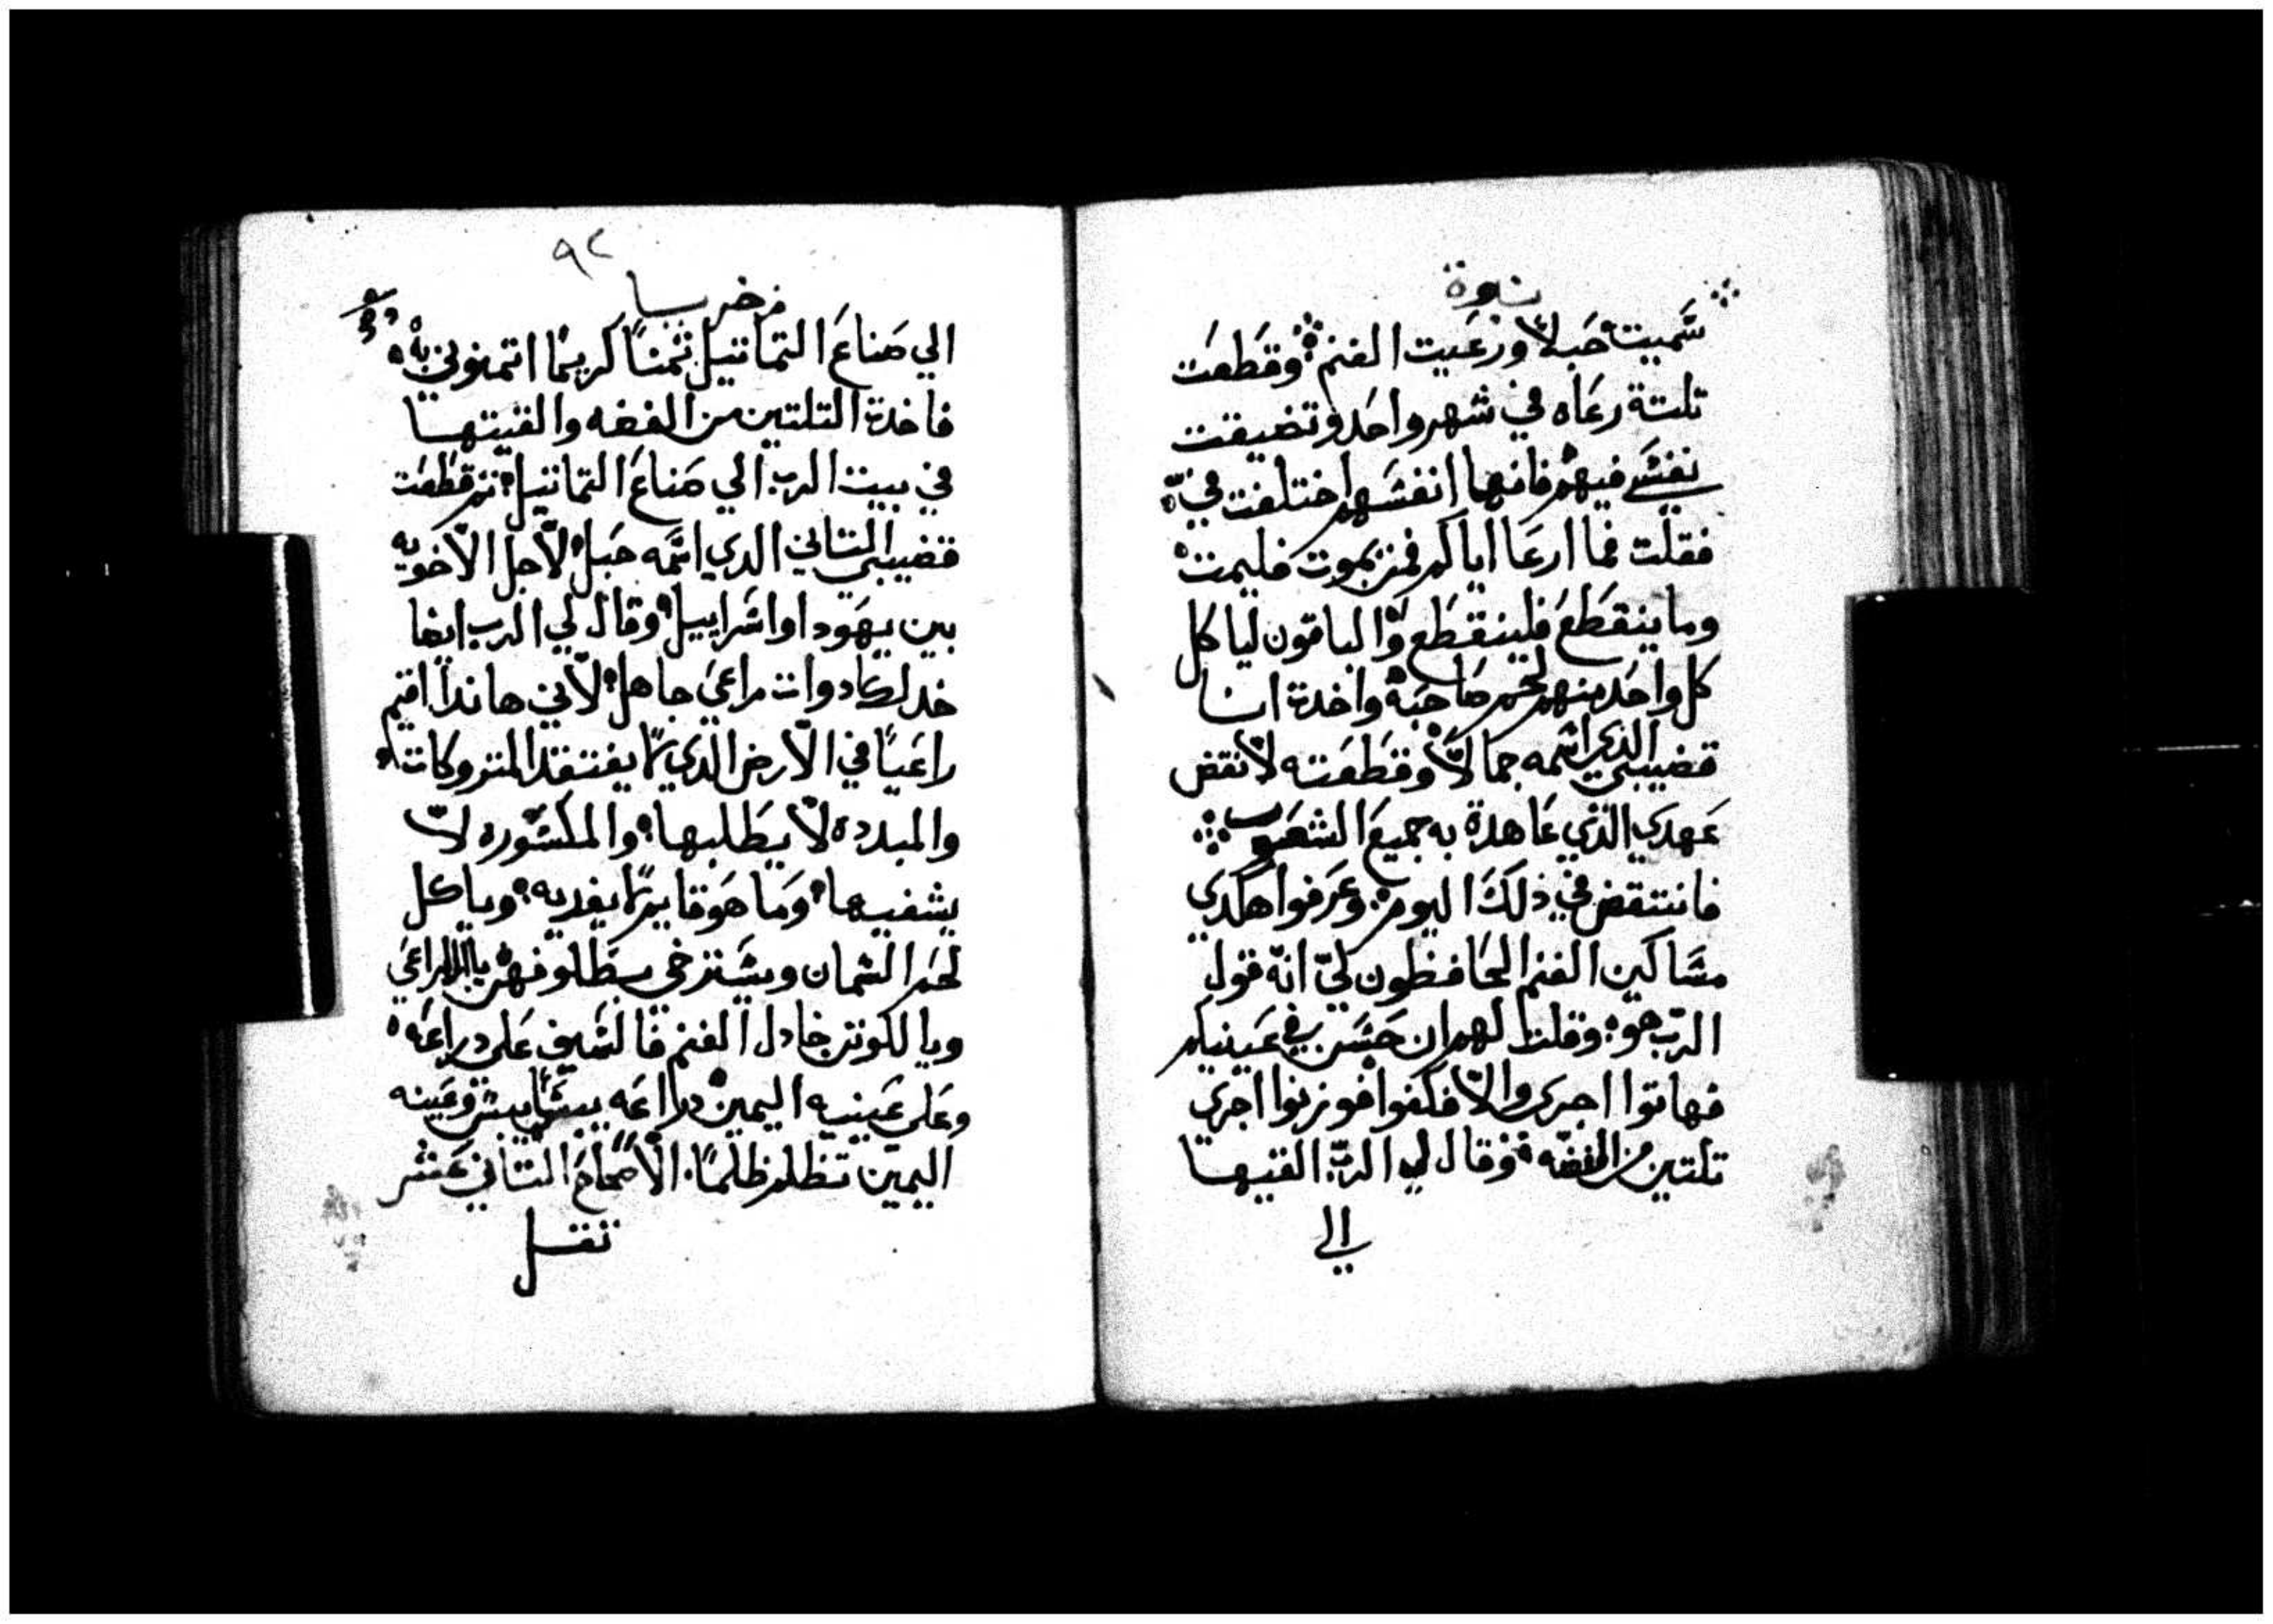 نبوة
سميت حبلا ورعيت الغنم وقطعت
تلتة رعاه في شهر واحد وتضيقت
نفسي فيهم فانهما انفسهم اختلفت في
فقلت فما ارعا اياكم فمن يموت فليمت
وما ينقطع فلينقطع والباقون لياكل
كل واحد منهم لحم صاحبه واخدة انا
قضيبي الدي اسمه جمالا وقطعته لانقض
عهدي الذي عاهدة به جميع الشعوب
فانتقض في ذلك اليوم وعرفوا هكدي
مساكين الغنم الحافظون لي انه قول
الرب هو وقلت لهم ان حسن في عينيكم
فهاتوا اجرى والا فكفوا فوزنوا اجري
تلتين من الفضه وقال لي الرب القيها
الي
٩٢
زخريا
الي صناع التماتيل ثمنا كريما اتمنوني به
فاخدة التلتين من الفضه والقيتها
في بيت الرب الي صناع التماتيل ثم قطعت
قضيبي التاني الدي اسمه حبل لاجل الاخويه
بين يهودا واسراييل وقال لي الرب ايضا
خد لك ادوات راعي جاهل لاني هاندا اقيم
راعيا في الارض الذي ما يفتقد المتروكات
والمبدده لا يطلبها والمكسوره لا
يشفيها وما هو قايم ما يغديه وياكل
لحم السمان ويسترخي يا الراعي
ويا الكونتي خادل الغنم فالسيف على دراعه
وعلى عينيه اليمين دراعه ييبس وعينه
اليمين تظلم ظلما الاصحاح التاني عشر
تقل